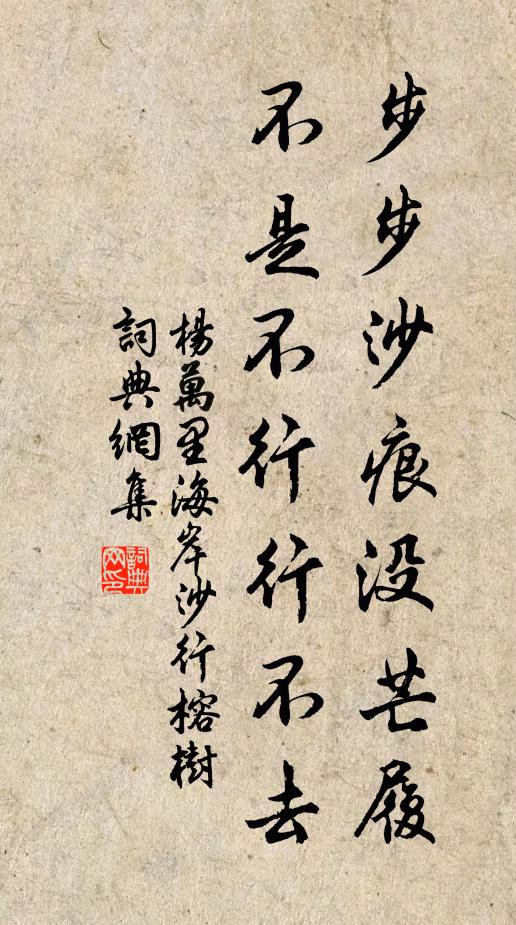 步步沙痕没芒履
不是不行行不去
楊萬里海岸沙行榕樹
詞典網集
詞典網印